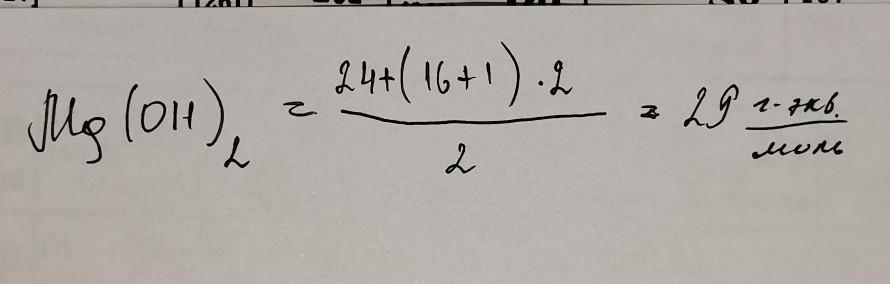 Mg(OH)₂ = (24+(16+1)·2)/2 = 29 г-экв./моль